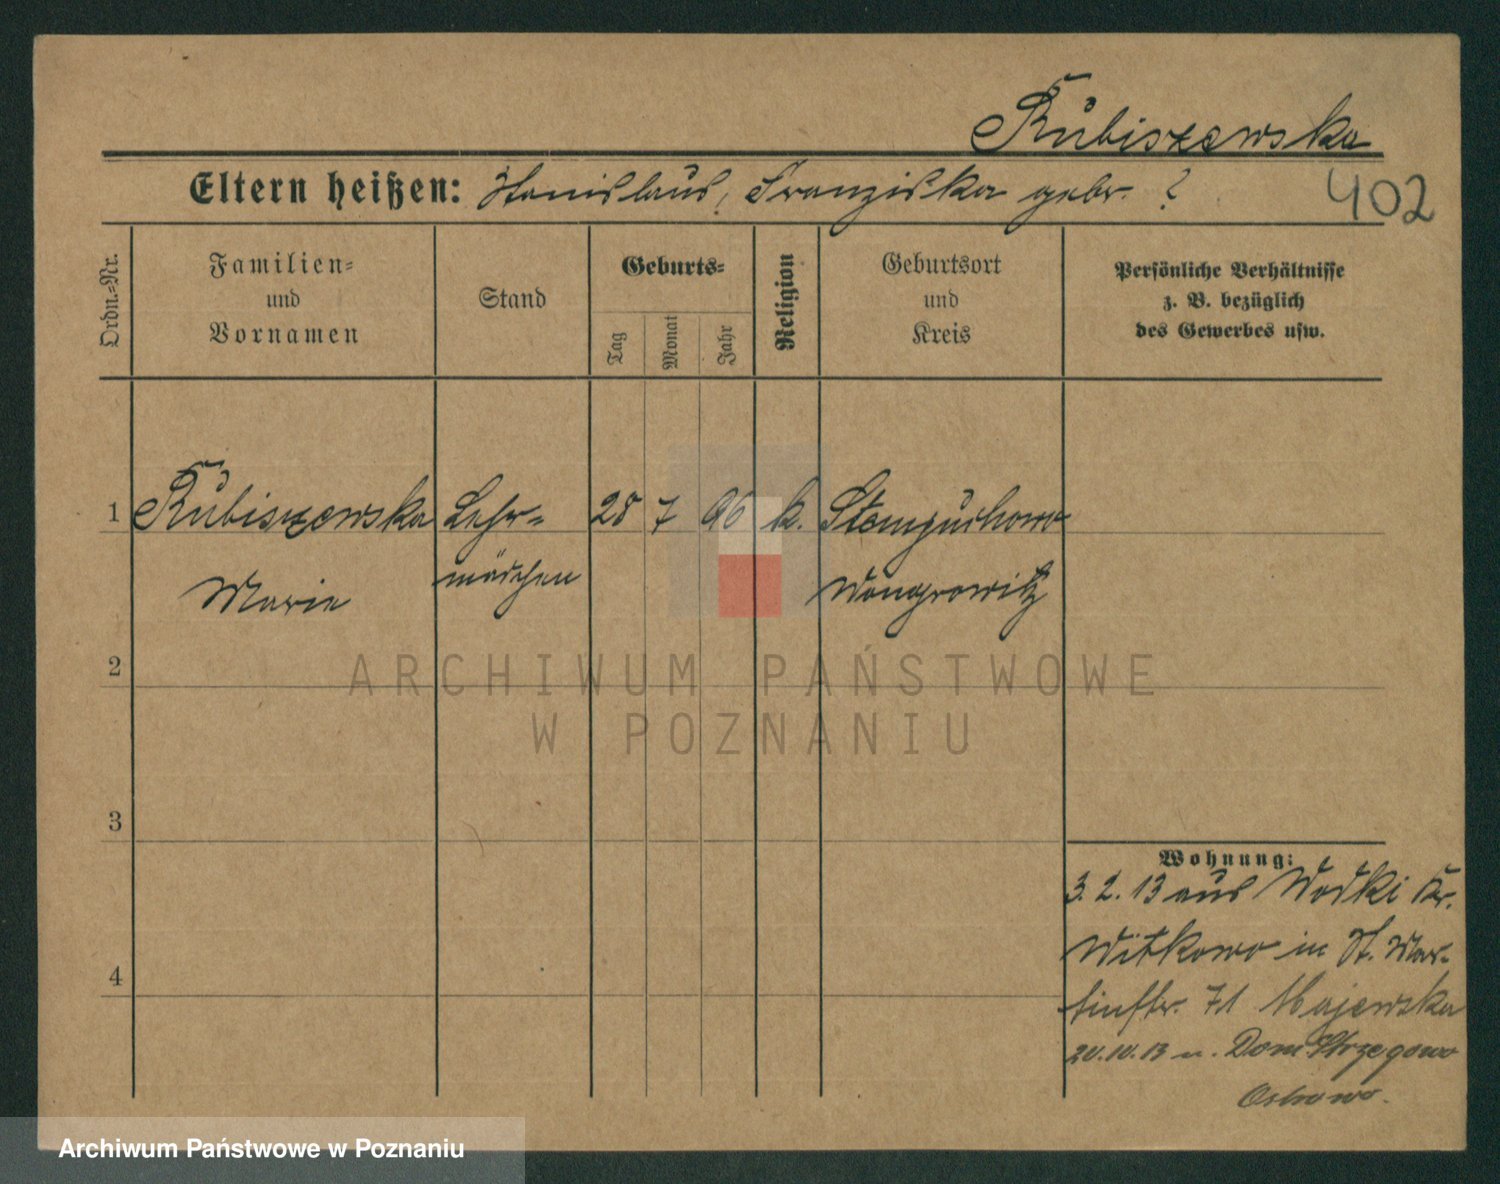 Kubiszewska
Eltern heißen: Stanislaus, Franziska gebr. ?
402
Ordn.=Nr.
Familien=
und
Vornamen
Stand
Geburts=
Tag
Monat
Jahr
Religion
Geburtsort
und
Kreis
Persönliche Verhältnisse
z. B. bezüglich
des Gewerbes usw.
1 Kubiszewska Lehr= 28 7 96 k. Stempuchowo
Marie mädchen Wongrowitz
2
ARCHIWUM PAŃSTWOWE
W POZNANIU
3
Wohnung:
3.2.13 aus Wodki Kr.
Witkowo in St. Mar-
4
tinstr. 71 Majewska
13 n. Dom Strzegowo
Ostrowo.
Archiwum Państwowe w Poznaniu